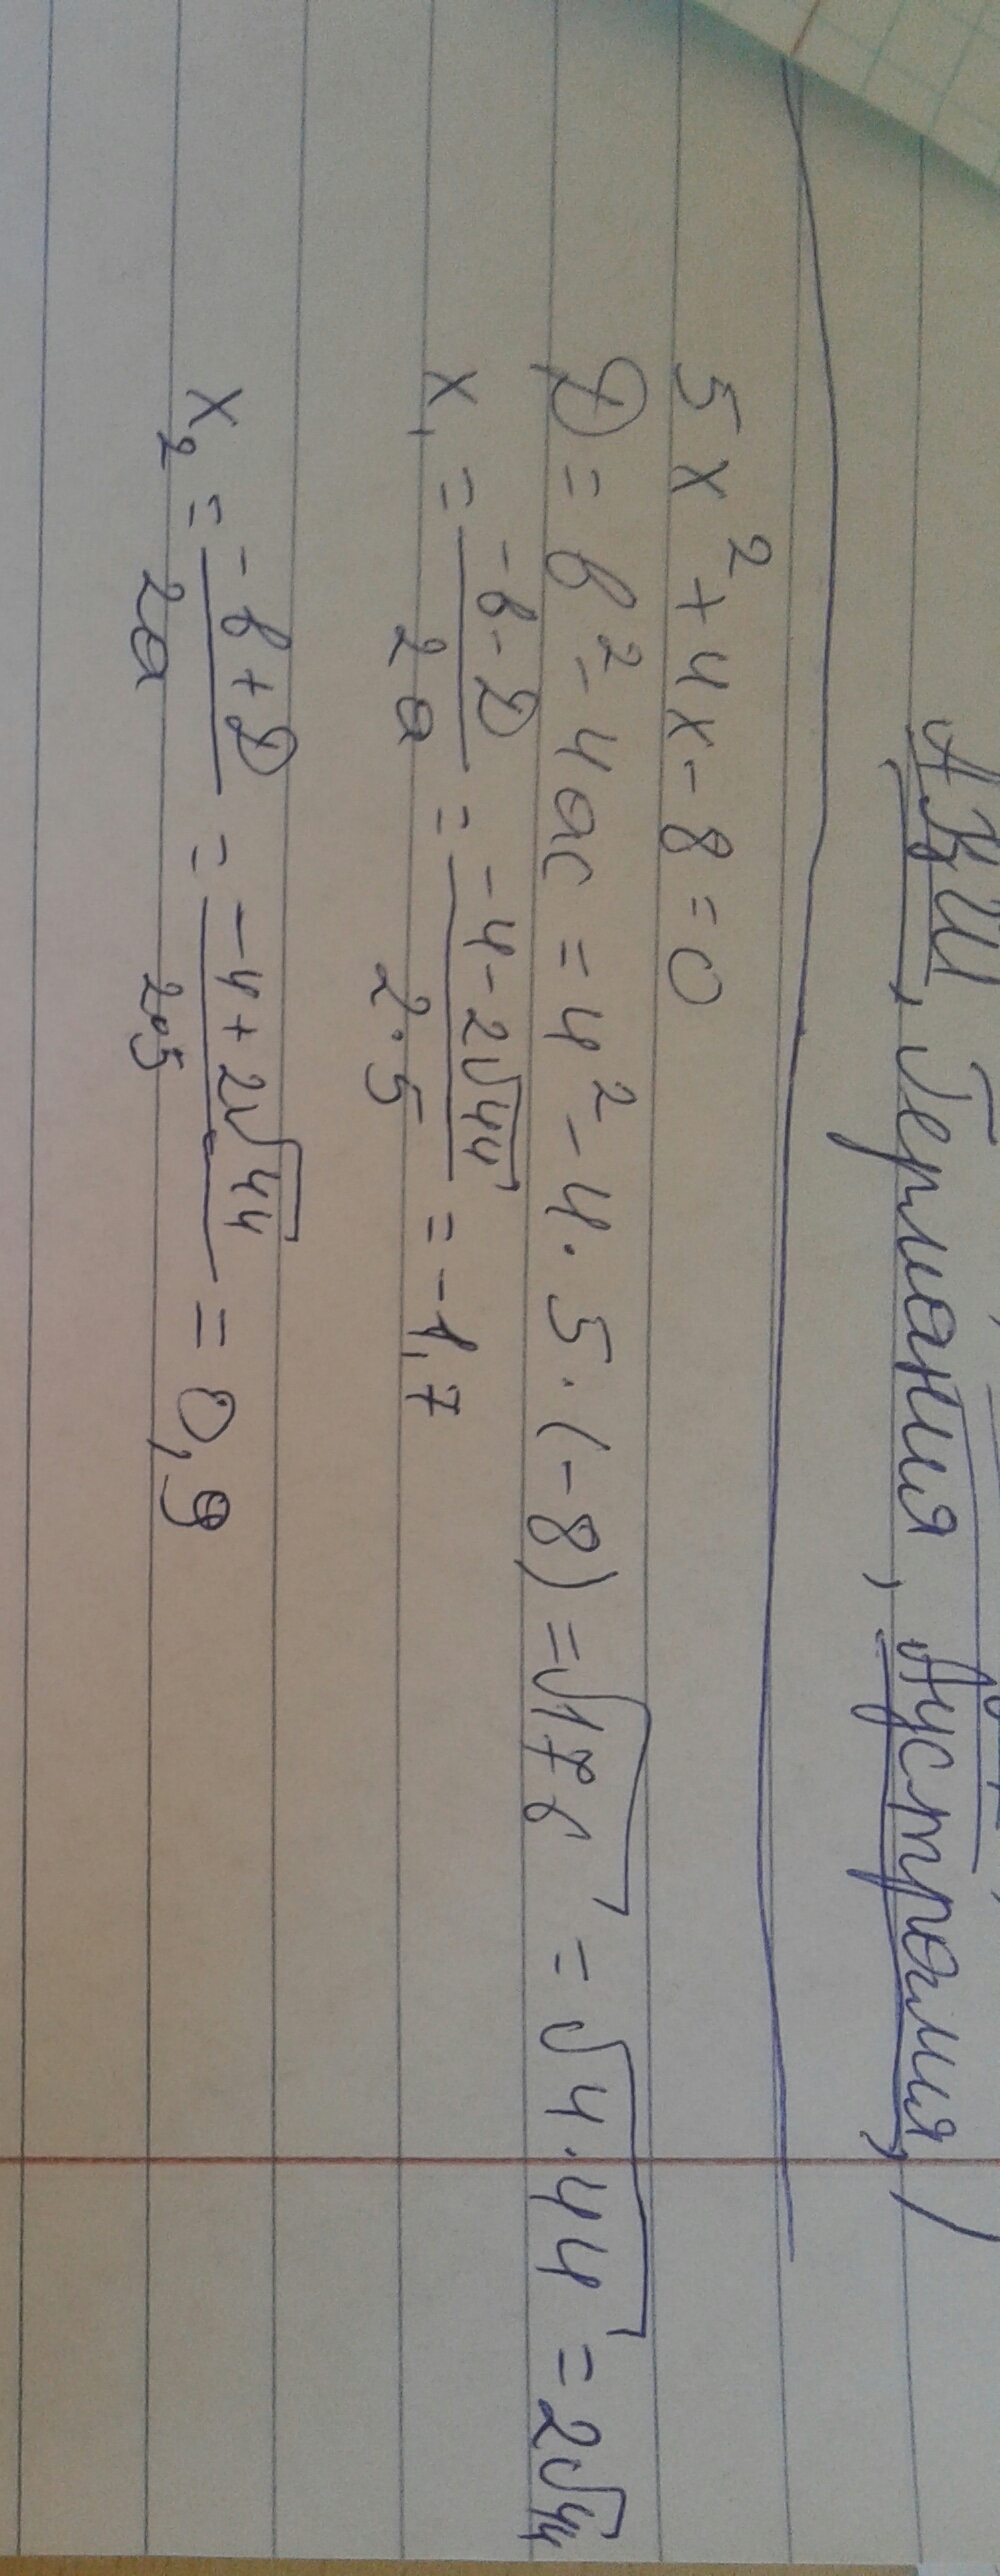 АҚШ, Германия, Аустралия,
5x² + 4x - 8 = 0
D = b² - 4ac = 4² - 4 · 5 · (-8) = √176 = √4·44 = 2√44
x₁ = -b-D/2a = -4-2√44/2·5 = -1,7
x₂ = -b+D/2a = -4+2√44/2·5 = 0,9